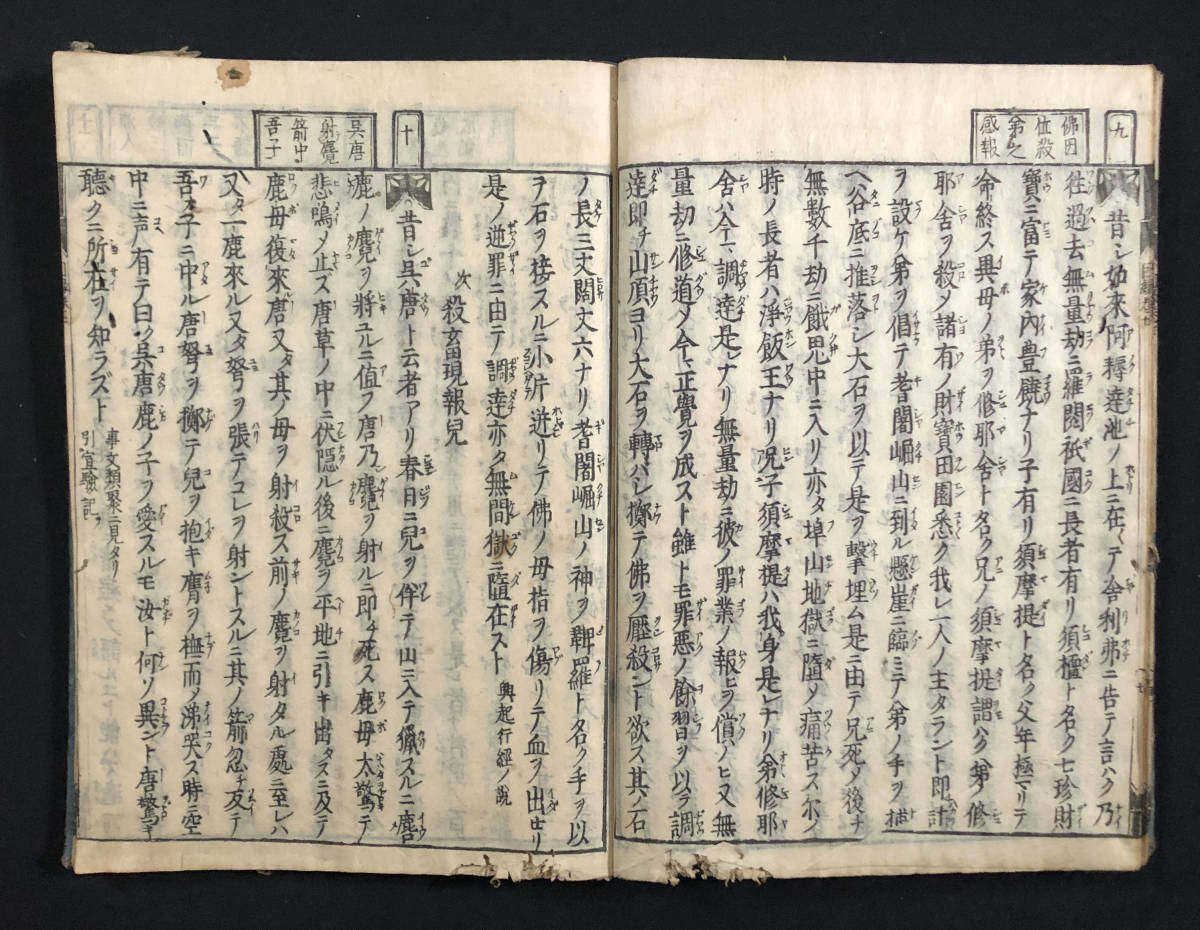 九
佛因
位殺
弟之
感報
昔シ如来阿耨達池ノ上ニ在シテ舎利弗ニ告テ言ハク乃
往過去無量劫ニ羅閲祇國ニ長者有リ須檀ト名ク七珍財
寶ニ富テ家内豊饒ナリ子有リ須摩提ト名ク父年極マリテ
命終ス異母ノ弟ヲ修耶舎ト名ク兄ノ須摩提謂ハク弟修
耶舎ヲ殺メ諸有ノ財寶田園悉ク我レ一人ノ主タラント即計
ヲ設ケ弟ヲ倡テ耆闍崛山ニ到ル懸崖ニ臨ミテ弟ノ手ヲ捕
ヘ谷底ニ推落シ大石ヲ以テ是ヲ撃埋ム是ニ由テ兄死メ後チ
無数千劫ニ餓鬼中ニ入リ亦タ埠山地獄ニ墮メ痛苦ス尓ノ
時ノ長者ハ浄飯王ナリ兄子須摩提ハ我身是レナリ弟修耶
舎ハ今マ調達是レナリ無量劫ニ彼ノ罪業ノ報ヒヲ償ノヒ又無
量劫ニ修道メ今マ正覺ヲ成スト雖トモ罪惡ノ餘習ヲ以ラ調
達即チ山頂ヨリ大石ヲ轉バシ擲テ佛ヲ壓殺ント欲ス其ノ石
ノ長三丈闊丈六ナリ耆闍崛山ノ神ヲ鞞羅ト名ク手ヲ以
ヲ石ヲ接スルニ小片迸リテ佛ノ母指ヲ傷リテ血ヲ出セリ
是ノ逆罪ニ由テ調達亦タ無間獄ニ墮在スト 興起行經ノ説
次 殺畜現報兒
十
呉唐
射麑
箭中
吾子
昔シ呉唐ト云者アリ春日ニ兒ヲ伴テ山ニ入テ獵スルニ麈
鹿ノ麑ヲ將ユルニ値フ唐乃麑ヲ射ルニ即チ死ス鹿母太驚テ
悲鳴メ止ズ唐草ノ中ニ伏隠ル後ニ麑ヲ平地ニ引キ出タスニ及テ
鹿母復來唐又タ其ノ母ヲ射殺ス前ノ麑ヲ射タル處ニ至レハ
又タ一鹿來ル又タ弩ヲ張テコレヲ射ントスルニ其ノ箭忽チ反テ
吾カ子ニ中ル唐弩ヲ擲テ兒ヲ抱キ膺ヲ撫而メ涕哭ス時ニ空
中ニ声有テ曰ク呉唐鹿ノ子ヲ愛スルモ汝ト何ソ異ント唐驚キ
聴クニ所在ヲ知ラズト 事文類聚ニ見タリ
引宣驗記ヲ